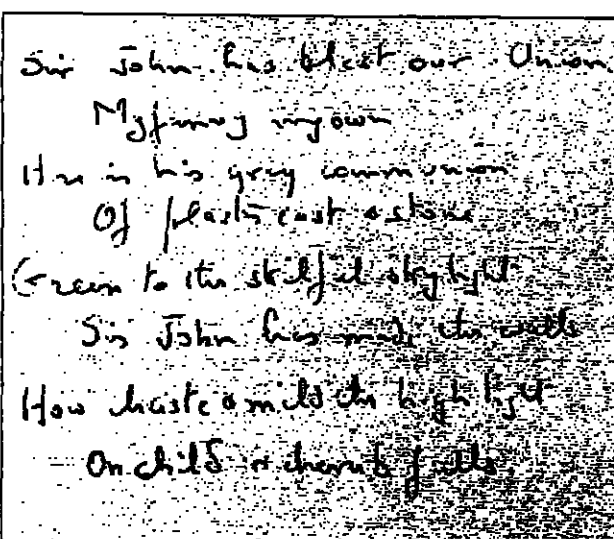 Sir John has blest our Union
My own
Here in his grey communion
Of plaster cast & stone
Green to the skilful skylight
Sir John has made the walls
How chaste & mild the high light
On child or cherub falls.